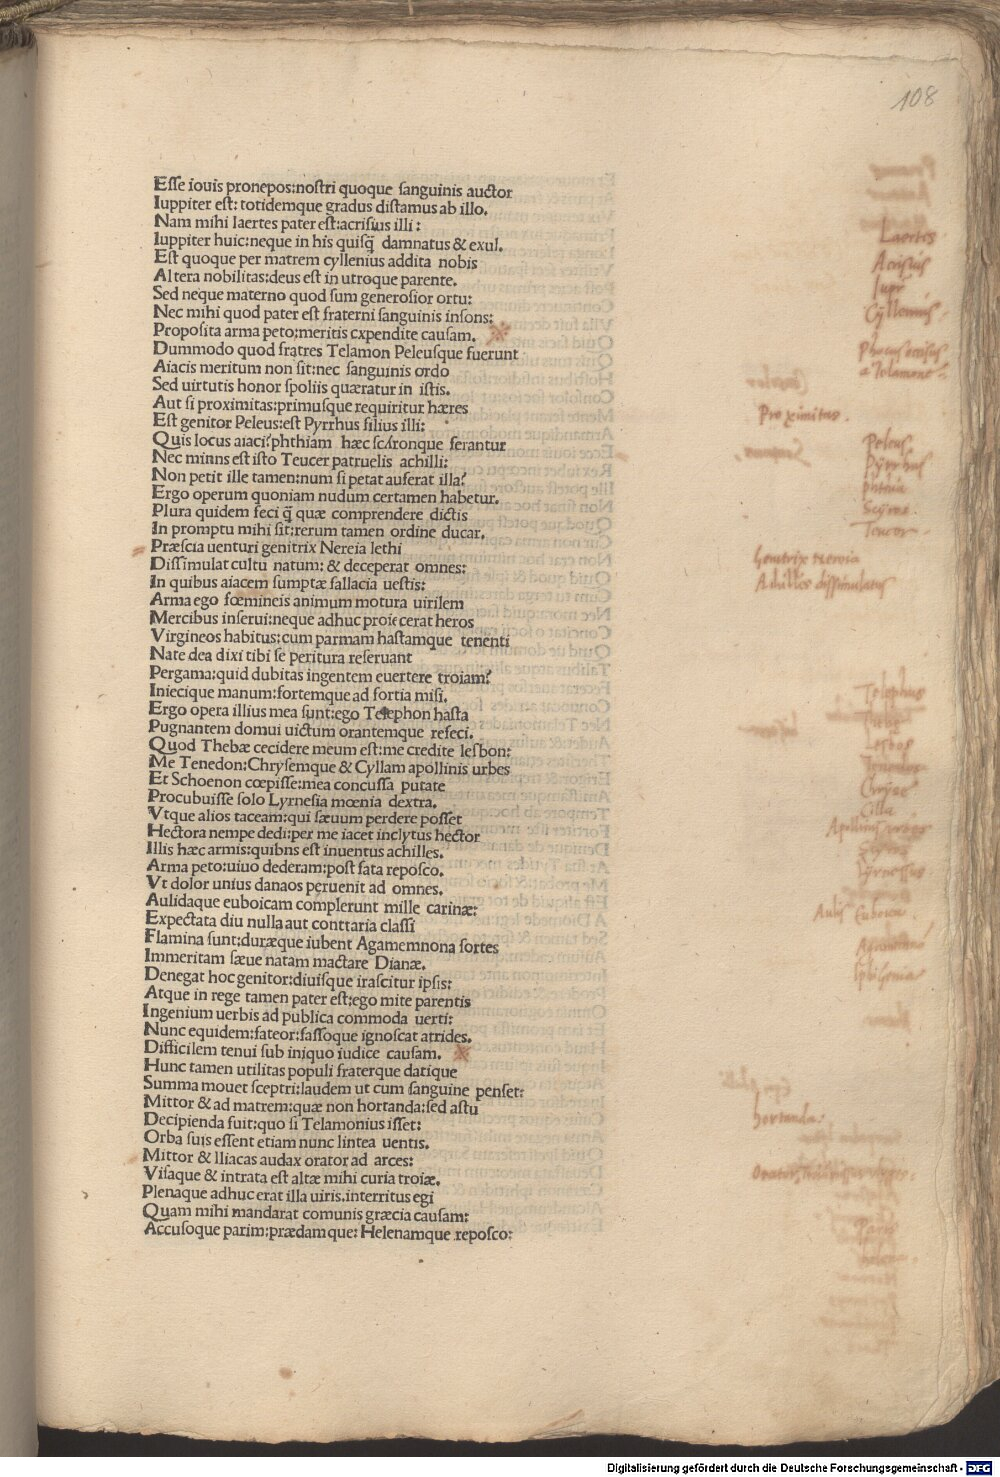 108
Esse iouis pronepos:nostri quoque sanguinis auctor
Iuppiter est: totidemque gradus distamus ab illo.
Nam mihi laertes pater est:acrisius illi:
Iuppiter huic:neque in his quisq̃ damnatus & exul.
Est quoque per matrem cyllenius addita nobis
Altera nobilitas:deus est in utroque parente.
Sed neque materno quod sum generosior ortu:
Nec mihi quod pater est fraterni sanguinis insons:
Proposita arma peto:meritis cxpendite causam.
Dummodo quod fratres Telamon Peleusque fuerunt
Aiacis meritum non sit:nec sanguinis ordo
Sed uirtutis honor spoliis quæratur in istis.
Aut si proximitas:primusque requiritur hæres
Est genitor Peleus:est Pyrrhus filius illi:
Quis locus aiaci?phthiam hæc scironque ferantur
Nec minns est isto Teucer patruelis achilli:
Non petit ille tamen:num si petat auferat illa?
Ergo operum quoniam nudum certamen habetur.
Plura quidem feci q̃ quæ comprendere dictis
In promptu mihi sit:rerum tamen ordine ducar.
Præscia uenturi genitrix Nereia lethi
Dissimulat cultu natum: & deceperat omnes:
In quibus aiacem sumptæ fallacia uestis:
Arma ego fœmineis animum motura uirilem
Mercibus inserui:neque adhuc proiecerat heros
Virgineos habitus:cum parmam hastamque tenenti
Nate dea dixi tibi se peritura reseruant
Pergama:quid dubitas ingentem euertere troiam?
Iniecique manum:fortemque ad fortia misi.
Ergo opera illius mea sunt:ego Telephon hasta
Pugnantem domui uictum orantemque refeci.
Quod Thebæ cecidere meum est:me credite lesbon:
Me Tenedon:Chrysemque & Cyllam apollinis urbes
Et Schoenon cœpisse:mea concussa putate
Procubuisse solo Lyrnesia mœnia dextra.
Vtque alios taceam:qui sæuum perdere posset
Hectora nempe dedi:per me iacet inclytus hector
Illis hæc armis:quibns est inuentus achilles.
Arma peto:uiuo dederam:post fata reposco.
Vt dolor unius danaos peruenit ad omnes.
Aulidaque euboicam complerunt mille carinæ:
Expectata diu nulla aut conttaria classi
Flamina sunt:duræque iubent Agamemnona sortes
Immeritam sæue natam mactare Dianæ.
Denegat hoc genitor:diuisque irascitur ipsis:
Atque in rege tamen pater est:ego mite parentis
Ingenium uerbis ad publica commoda uerti:
Nunc equidem:fateor:fassoque ignoscat atrides.
Difficilem tenui sub iniquo iudice causam.
Hunc tamen utilitas populi fraterque datique
Summa mouet sceptri:laudem ut cum sanguine penset:
Mittor & ad matrem:quæ non hortanda:sed astu
Decipienda fuit:quo si Telamonius isset:
Orba suis essent etiam nunc lintea uentis.
Mittor & Iliacas audax orator ad arces:
Visaque & intrata est altæ mihi curia troiæ.
Plenaque adhuc erat illa uiris.interritus egi
Quam mihi mandarat comunis græcia causam:
Accusoque parim:prædamque: Helenamque reposco:
Laertes
Acrisius
Iupr
Cyllenius
a Telamone
Proximitas.
Peleus
Pyrrhus
phthia
Scyros
Teucer
Genitrix Nereia
Achilles dissimulatus
Telephus
Lesbos
Tenedos
Chryse
Cilla
Lyrnessus
Aulis Euboica
Iphigenia
hortanda:
Digitalisierung gefördert durch die Deutsche Forschungsgemeinschaft - DFG